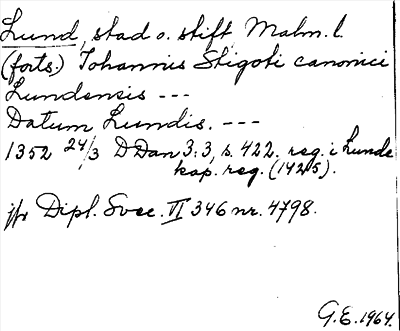 Lund, stad o. stift, Malm. l.
(forts.) Johannis Stigoti canonici
Lundensis ---
Datum Lundis. ---
1352 24/3 DDan 3:3, s. 422. reg. i Lunde
kap. reg. (1425).
jfr Dipl. Svec. VI 346 nr. 4798.
G.E. 1964.